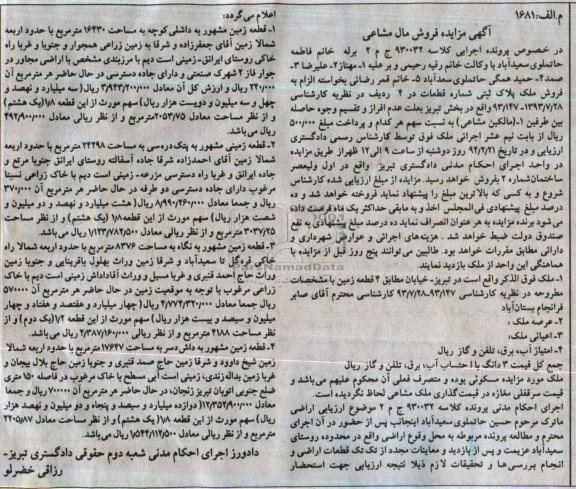 م.الف:۱۶۸۱
آگهی مزایده فروش مال مشاعی
در خصوص پرونده اجرایی کلاسه ۹۳۰۰۳۲ ج م ۲ برله خانم فاطمه
حاتملوی سعیدآباد با وکالت خانم رقیه رحیمی و بر علیه ۱- مهناز۲- علیرضا ۳-
صمد۴- حمید همگی حاتملوی سعدآباد ۵- خانم قمر رضائی بخواسته الزام به
فروش ملک پلاک ثبتی شماره قطعات در ۴ ردیف در نظریه کارشناسی
۹۳/۱۴۷-۱۳۹۳/۷/۲۸ واقع در بخش تبریز بعلت عدم افراز و تقسیم وجوه حاصله
بین طرفین ۱-(مالکین مشاعی) به نسبت سهم هر کدام و پرداخت مبلغ ۵۰۰/۰۰۰
ریال از بابت نیم عشر اجرائی ملک فوق توسط کارشناس رسمی دادگستری
ارزیابی و در تاریخ ۹۴/۲/۲۱ روز دوشنبه از ساعت ۹ الی ۱۲ ظهراز طریق مزایده
در واحد اجرای احکام مدنی دادگستری تبریز واقع در اول ولیعصر
ساختمان شماره ۲ بفروش خواهد رسید. مزایده از مبلغ ارزیابی شده کارشناس
شروع و به کسی که بالاترین مبلغ را پیشنهاد نماید فروخته خواهد شد و ده
درصد مبلغ پیشنهادی فی المجلس اخذ و به مابقی حداکثر یک ماه فرصت داده
می شود برنده مزایده به هر عنوان انصراف نماید ده درصد مبلغ پیشنهادی به نفع
صندوق دولت ضبط خواهد شد . هزینه های اجرائی و عوارض شهرداری و
دارائی مطابق مقررات خواهد بود. طالبین می توانند پنج روز قبل از مزایده با
هماهنگی این واحد از ملک بازدید نمایند.
۱- ملک فوق الذکر واقع است در تبریز- خیابان مطابق ۴ قطعه زمین با مشخصات
مطروحه در نظریه کارشناسی ۹۳/۱۴۷-۹۳/۷/۲۸ کارشناسی محترم آقای صابر
فرانجام بستان آباد
۲- عرصه ملک :
۳- اعیانی ملک:
۴- امتیاز آب، برق، تلفن و گاز ریال
جمع کل قیمت ۳ دانگ با احتساب آب، برق، تلفن و گاز ریال
ملک مورد مزایده مسکونی بوده و متصرف فعلی آن محکوم علیهم می باشد و
قیمت سرقفلی مغازه در قیمت گذاری ملک مشاعی لحاظ نگردیده است.
اجرای احکام مدنی پرونده کلاسه ۹۳۰۰۳۲ ج م ۲ موضوع ارزیابی اراضی
ماترک مرحوم حسین حاتملوی سعیدآباد اینجانب پس از حضور در آن اجرای
محترم و مطالعه پرونده مربوطه به محل وقوع اراضی واقع در محدوده روستای
سعیدآباد عزیمت و پس از بازدید و معاینات مجدد از تک تک قطعات اراضی و
انجام بررسی ها و تحقیقات لازم ذیلا نتیجه ارزیابی جهت استحضار
اعلام می گردد:
۱- قطعه زمین مشهور به داشلی کوچه به مساحت ۱۶۴۳۰ مترمربع با حدود اربعه
شمالا زمین آقای جعفرزاده و شرقا به زمین زراعی همجوار و جنوبا و غربا راه
خاکی روستای ایرانق- زمینی است دیم با مرزبندی مشخص با اراضی مجاور در
جوار فاز ۲ شهرک صنعتی و دارای جاده دسترسی در حال حاضر هر مترمربع آن
۲۴۰/۰۰۰ ریال و ارزش کل آن معادل ۳/۹۴۳/۲۰۰/۰۰۰ ریال( سه میلیارد و نهصد و
چهل و سه میلیون و دویست هزار ریال) سهم مورث از این قطعه ۱/۸(یک هشتم)
و از نظر مساحت معادل ۲۰۵۳/۷۵ مترمربع و از نظر ریالی معادل ۴۹۲/۹۰۰/۰۰۰
ریال می باشد.
۲- قطعه زمینی مشهور به پتک دره سی به مساحت ۲۴۲۹۸ مترمربع با حدود اربعه
شمالا زمین آقای احمدزاده شرقا جاده آسفالته روستای ایرانق جنوبا مرتع و
جاده ایرانق و غربا راه دسترسی مزرعه- زمینی است دیم با خاک زراعی نسبتا
مرغوب دارای جاده دسترسی دو طرفه در حال حاضر هر مترمربع آن ۳۷۰/۰۰۰
ریال و جمعا معادل ۸/۹۹۰/۲۶۰/۰۰۰ ریال( هشت میلیارد و نهصد و دو میلیون و
شصت هزار ریال) سهم مورث از این قطعه ۱/۸ (یک هشتم) و از نظر مساحت
۳۰۳۷/۲۵ مترمربع و از نظر ریالی معادل ۱/۱۲۳/۷۸۲/۵۰۰ ریال می باشد.
۳- قطعه زمین مشهور به نگاه به مساحت ۸۳۷۶ مترمربع با حدود اربعه شمالا راه
خاکی قره گل تا سعیدآباد و شرقا زمین وراث بهلول باقربنایی و جنوبا زمین
وراث حاج احمد قنبری و غربا مسیل و وراث آقاداداش زمینی است دیم با خاک
زراعی مرغوب با توجه به موقعیت زمین در حال حاضر هر مترمربع آن ۵۷۰۰۰۰
ریال جمعا معادل ۴/۷۷۴/۳۲۰/۰۰۰ ریال( چهار میلیارد و هفتصد و هفتاد و چهار
میلیون و سیصد و بیست هزار ریال) سهم مورث از این قطعه ۱/۲(یک دوم) و از
نظر مساحت ۴۱۸۸ مترمربع و از نظر ریالی ۲/۳۸۷/۱۶۰/۰۰۰ ریال می باشد.
۴- قطعه زمین مشهور به داش دسر به مساحت ۱۷۶۴۷ مترمربع با حدود اربعه شمالا
زمین شیخ داوود و شرقا زمین حاج صمد قنبری و جنوبا زمین حاج بلال بیجان و
غربا زمین یداله زندی، زمینی است آبی مسطح با خاک مرغوب در فاصله ۱۵۰ متری
ضلع جنوبی اتوبان تبریز زنجان، در حال حاضر هر مترمربع آن ۷۰۰۰۰۰ ریال و جمعا
معادل ۱۲/۳۵۲/۹۰۰/۰۰۰ (دوازده میلیارد و سیصد و پنجاه و دو میلیون و نهصد هزار
ریال) سهم مورث از این قطعه ۱/۸( یک هشتم) و از نظر مساحت معادل ۲۲۰۵/۸۷
مترمربع و از نظر ریالی معادل ۱/۵۴۴/۱۱۲/۵۰۰ ریال می باشد.
دادورز اجرای احکام مدنی شعبه دوم حقوقی دادگستری تبریز-
رزاقی خضرلو